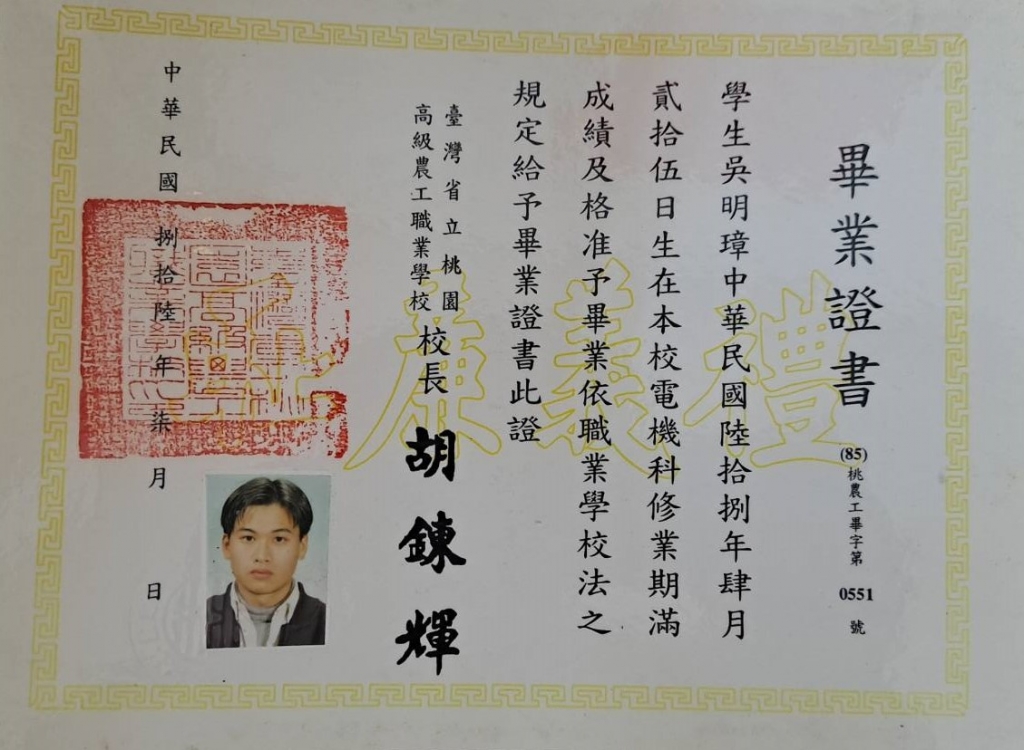 畢業證書
(85)桃農工畢字第 0551 號
學生吳明璋中華民國陸拾捌年肆月
貳拾伍日生在本校電機科修業期滿
成績及格准予畢業依職業學校法之
規定給予畢業證書此證
臺灣省立桃園
高級農工職業學校
校長 胡鍊輝
中華民國捌拾陸年柒月 日
禮義廉